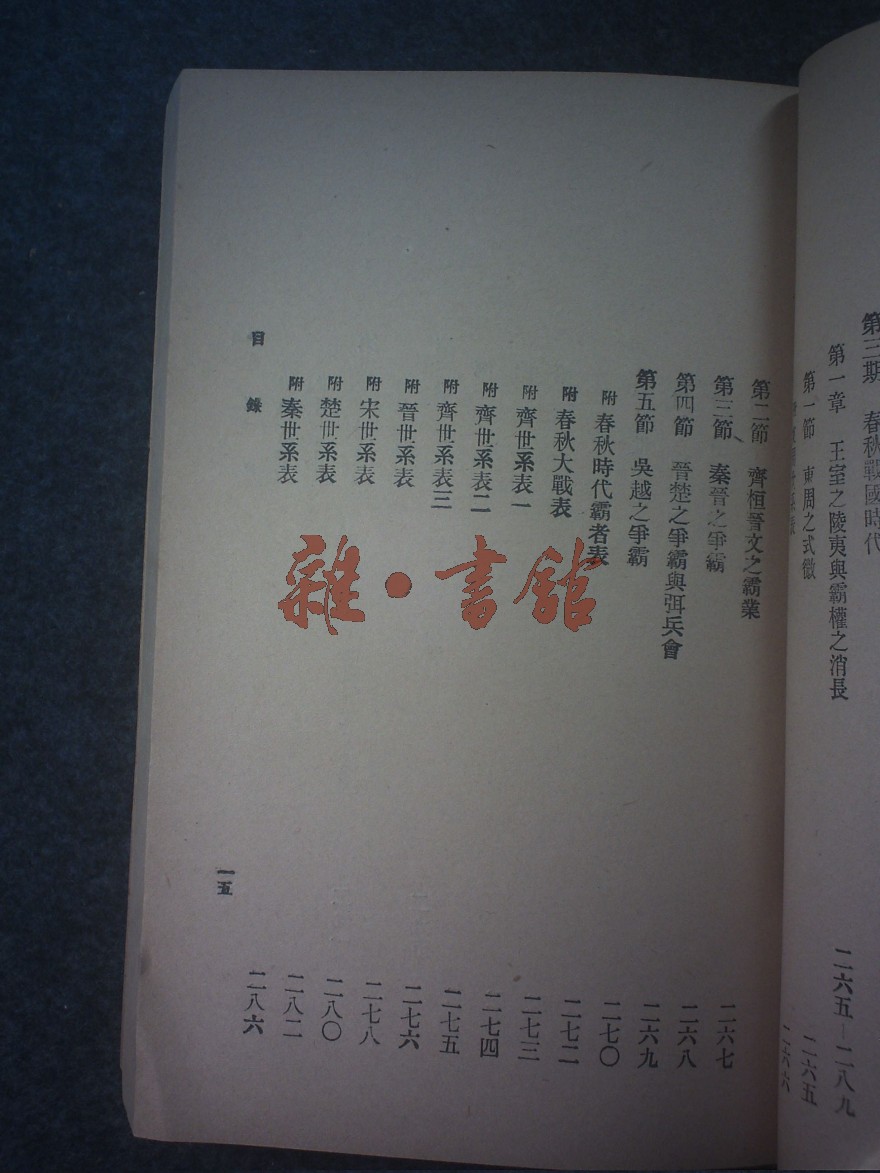 第三期　春秋戰國時代
第一章　王室之陵夷與霸權之消長　二六五—二八九
第一節　東周之式微　二六五
二六六
第二節　齊桓晉文之霸業　二六七
第三節　秦晉之爭霸　二六八
第四節　晉楚之爭霸與弭兵會　二六九
第五節　吳越之爭霸　二七〇
附　春秋時代霸者表　二七二
附　春秋大戰表　二七三
附　齊世系表一　二七四
附　齊世系表二　二七五
附　齊世系表三　二七六
附　晉世系表　二七八
附　宋世系表　二八〇
附　楚世系表　二八二
附　秦世系表　二八六
目錄　一五
雜·書館